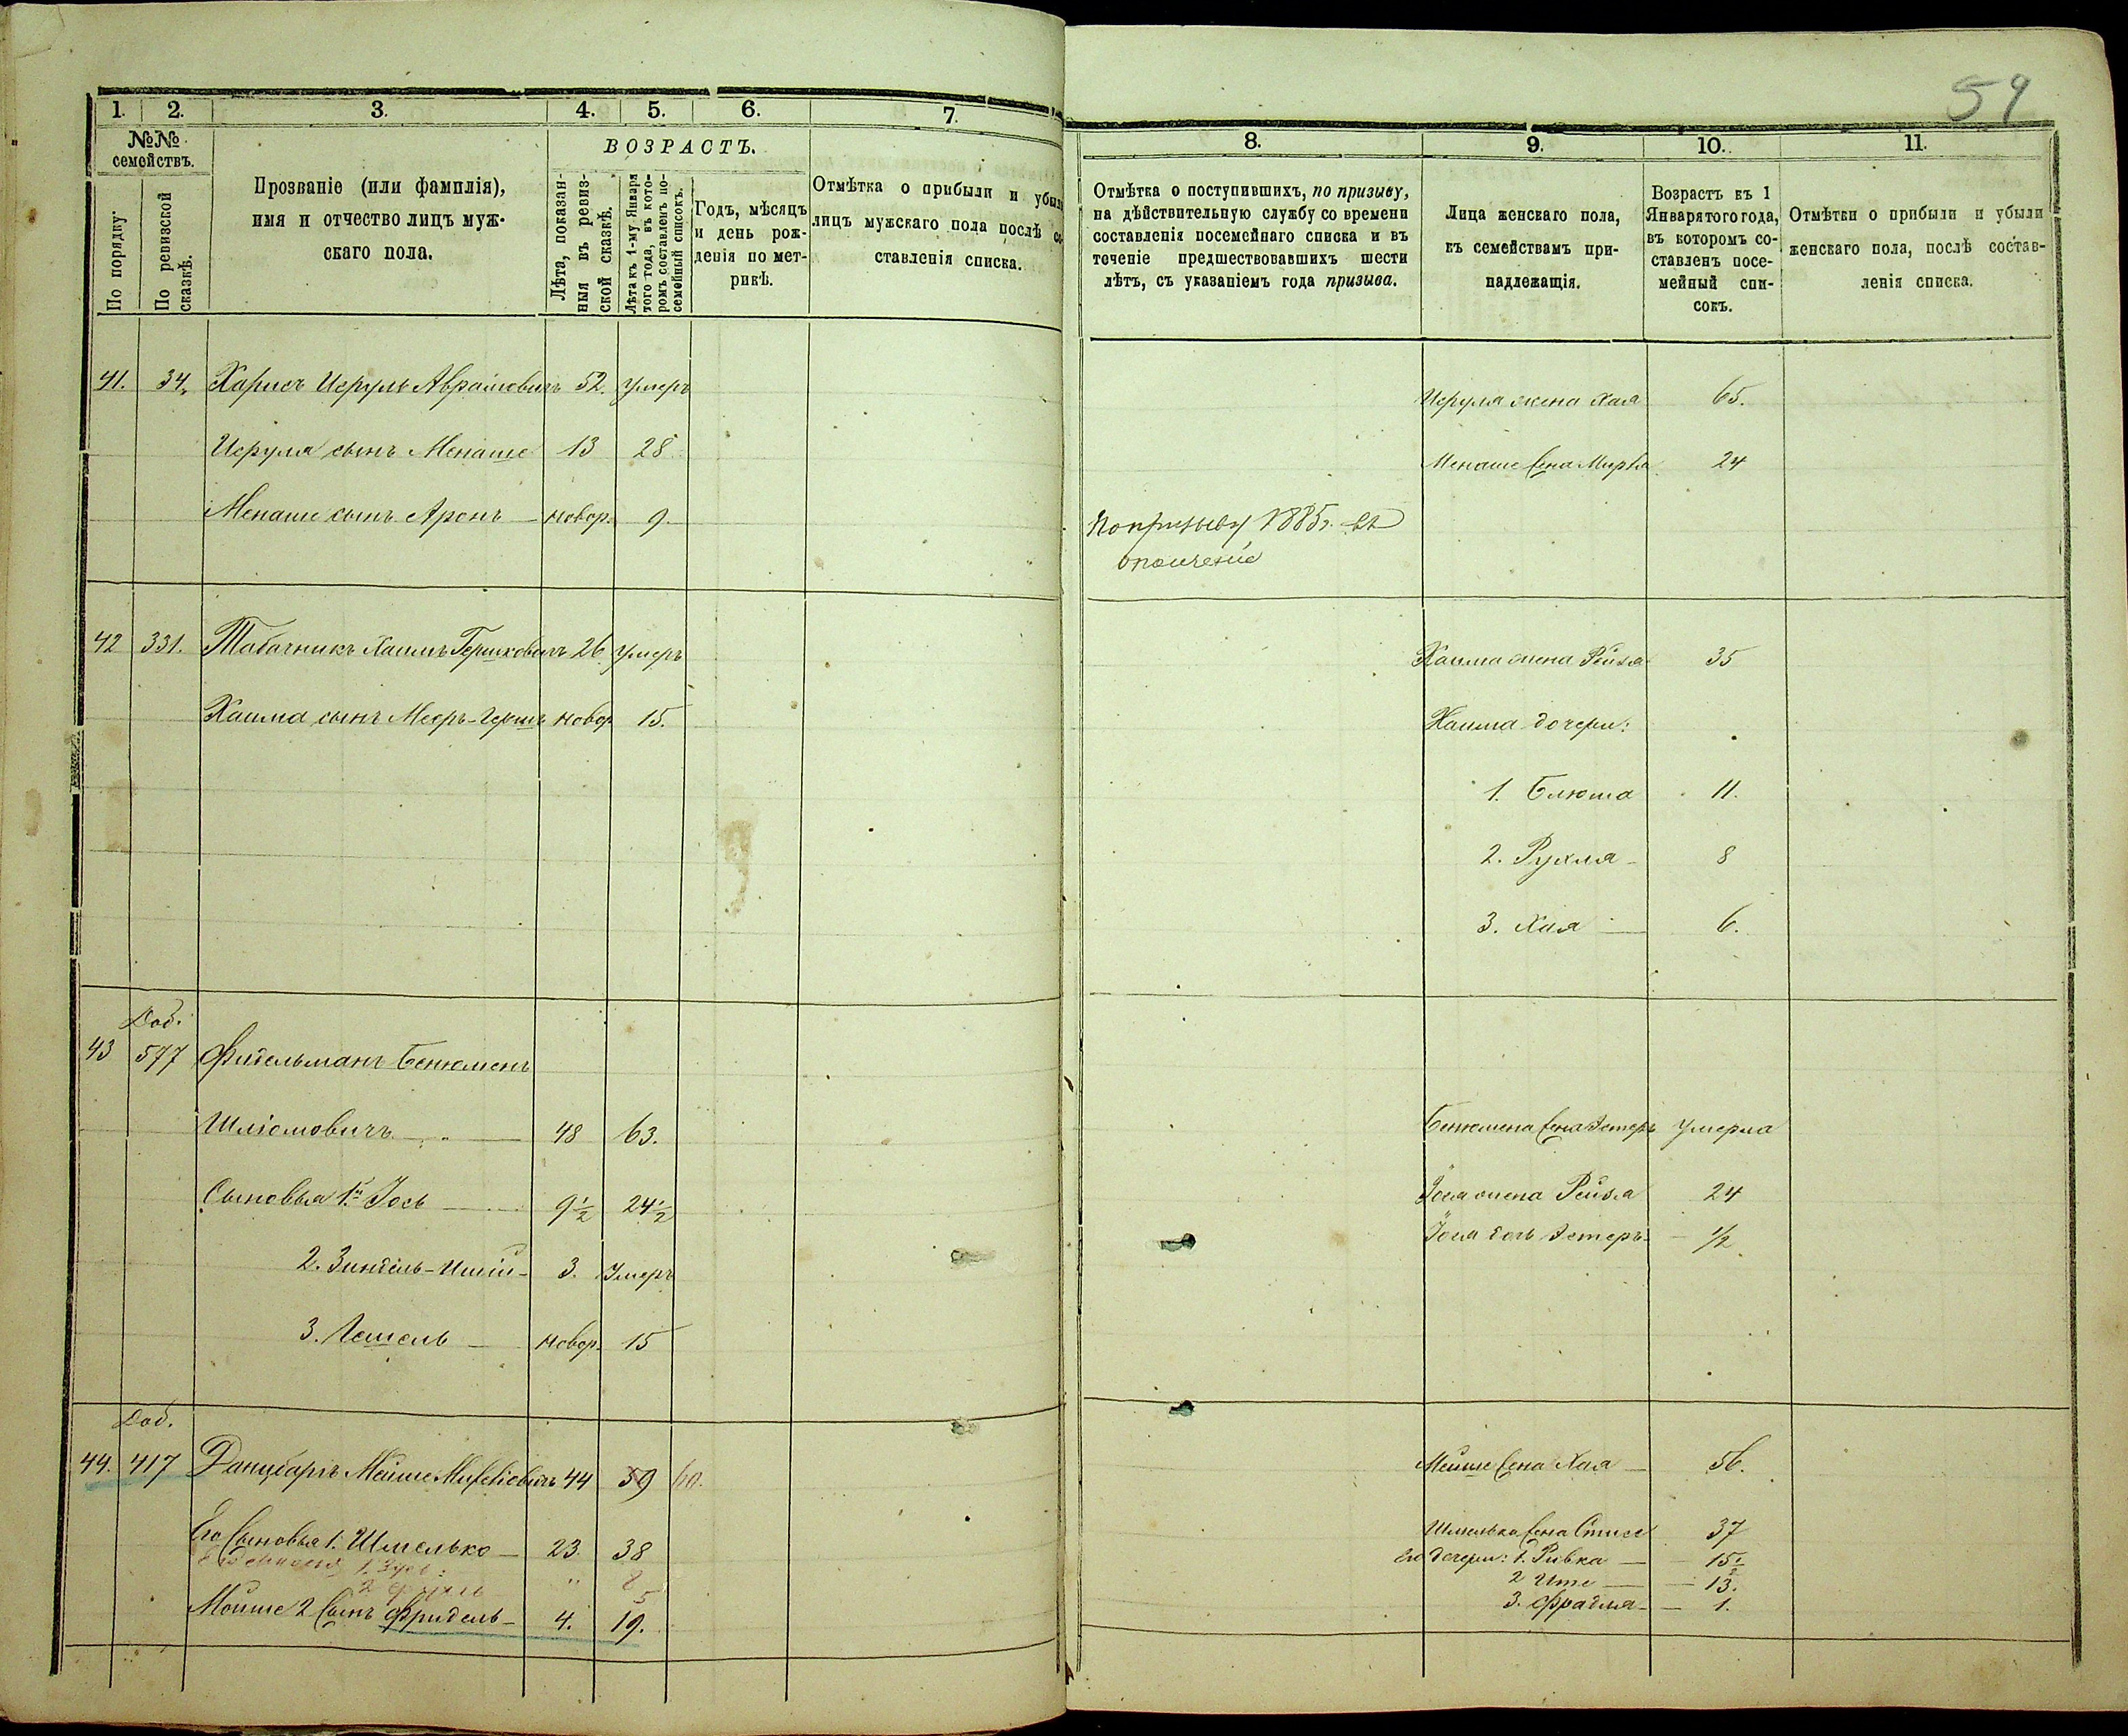 59
1. 2. 3. 4. 5. 6. 7.
№№ семействъ.
По порядку.
По ревизской сказкѣ.
Прозваніе (или фамилія),
имя и отчество лицъ муж-
скаго пола.
ВОЗРАСТЪ.
Лѣта, показан-
ныя въ ревиз-
ской сказкѣ.
Лѣта къ 1-му Января
того года, въ кото-
ромъ составленъ по-
семейный списокъ.
Годъ, мѣсяцъ
и день рож-
денія по мет-
рикѣ.
Отмѣтка о прибыли и убыли
лицъ мужскаго пола послѣ со-
ставленія списка.
8. 9. 10. 11.
Отмѣтка о поступившихъ, по призыву,
на дѣйствительную службу со времени
составленія посемейнаго списка и въ
теченіе предшествовавшихъ шести
лѣтъ, съ указаніемъ года призыва.
Лица женскаго пола,
къ семействамъ при-
надлежащія.
Возрастъ къ 1
Января того года,
въ которомъ со-
ставленъ посе-
мейный спи-
сокъ.
Отмѣтки о прибыли и убыли
женскаго пола, послѣ состав-
ленія списка.
41. 34. Харисъ Исруль Аврамовичъ 52. умеръ
Исруля жена Хая 65.
Исруля сынъ Менаше 13 28
Менаше жена Мирля 24
Менаше сынъ Аронъ новор. 9.
По призыву 1885 г. въ
ополченіе
42 331. Табачникъ Хаимъ Гершковичъ 26 умеръ
Хаима жена Рейзя 35
Хаима сынъ Мееръ-Гершъ новор 15.
Хаима дочери:
1. Блюма 11.
2. Рухля 8
3. Хая 6.
Доб.
43 577 Фидельманъ Бенюменъ
Шліомовичъ 48 63.
Бенюмена жена Эстеръ умерла
Сыновья 1й Іось 9½ 24½
Іося жена Рейзя 24
Іося дочь Эстеръ ½
2. Зиндель- 3. Умеръ
3. Гешель новор. 15
Доб.
44. 417 Данцбаргъ Мойше 44 59 60.
Мойше жена Хая 56.
Его Сыновья 1. Шмелько 23. 38
Шмелька жена 37
Его дочери: 1. Ривка 15½
2 Ите 13.
3. Фрадля 1.
1. Зусь: " 8
2 " 5
Мойше 2 Сынъ Фридель 4. 19.